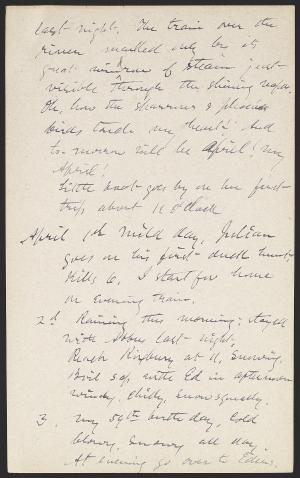 last night. The train over the
river marked only by its
great window of steam just
visible through the shining vapor.
Oh, how the sparrows & phoebe
birds touch me these! And
to-morrow will be April! my
April!
Little boat goes by on her first
trip about 10 o'clock
April 1st Mild day, Julian
goes on his first duck hunt
Kills 6. I start for home
on evening train.
2d Raining this morning; stayed
with Abbey last night.
Reach Roxbury at 11, Snowing.
Boil sap with Ed in afternoon
windy, chilly, snowsqually.
3. My 59th birth day, Cold
blowy, snowy all day.
At evening go over to Edens.